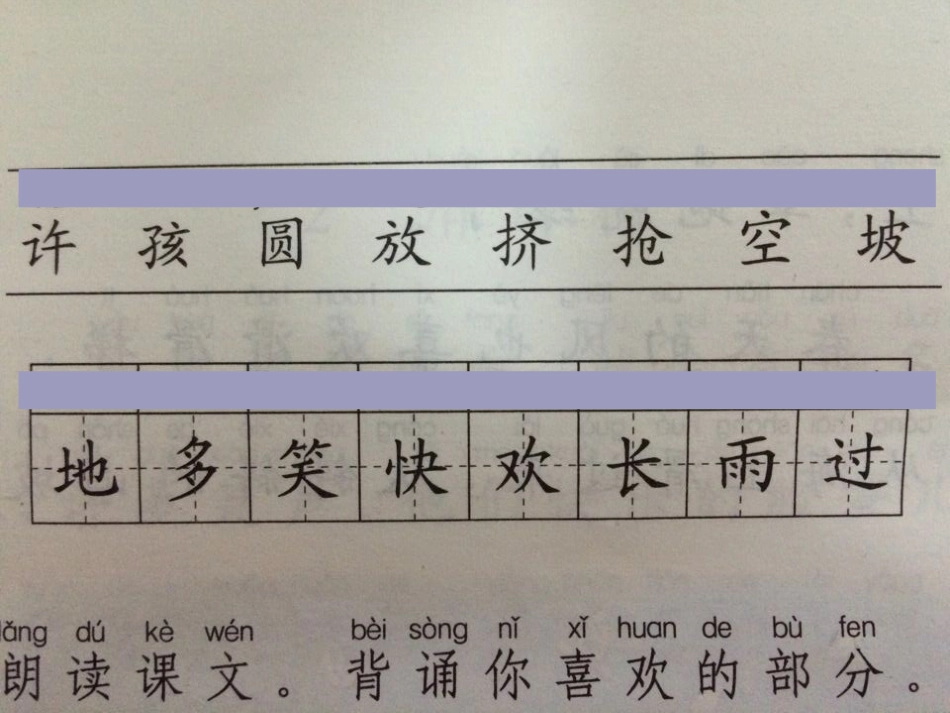 许 孩 圆 放 挤 抢 空 坡
地 多 笑 快 欢 长 雨 过
lǎng dú kè wén bèi sòng nǐ xǐ huan de bù fen
朗读课文。背诵你喜欢的部分。